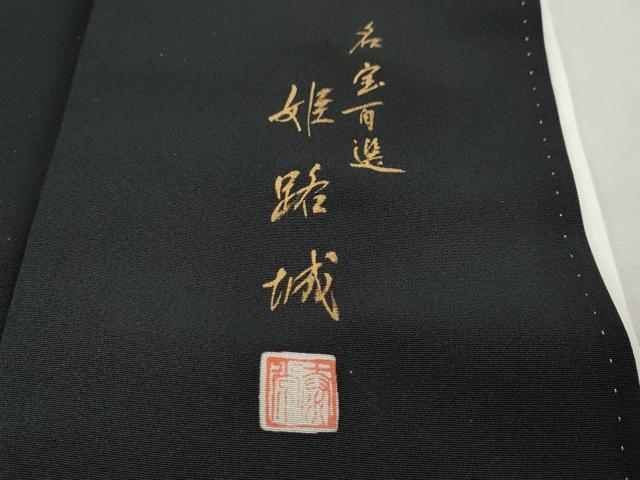 名宝百選
姫路城